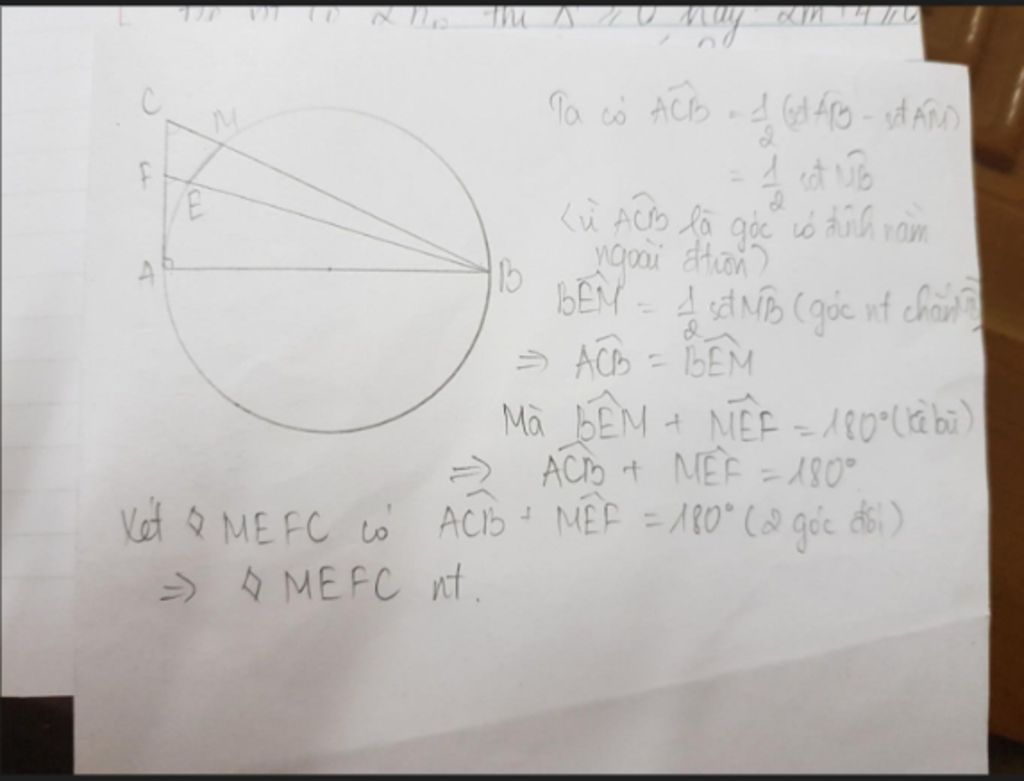 thì Δ ≥ 0 hay 2m + 4 ≥ 0
C
M
F
E
A
B
Ta có ACB = 1/2 (sđ AB - sđ AM)
= 1/2 sđ MB
(vì ACB là góc có đỉnh nằm
ngoài đtròn)
BEM = 1/2 sđ MB (góc nt chắn MB)
=> ACB = BEM
Mà BEM + MEF = 180° (kề bù)
=> ACB + MEF = 180°
Xét ◊ MEFC có ACB + MEF = 180° (2 góc đối)
=> ◊ MEFC nt.